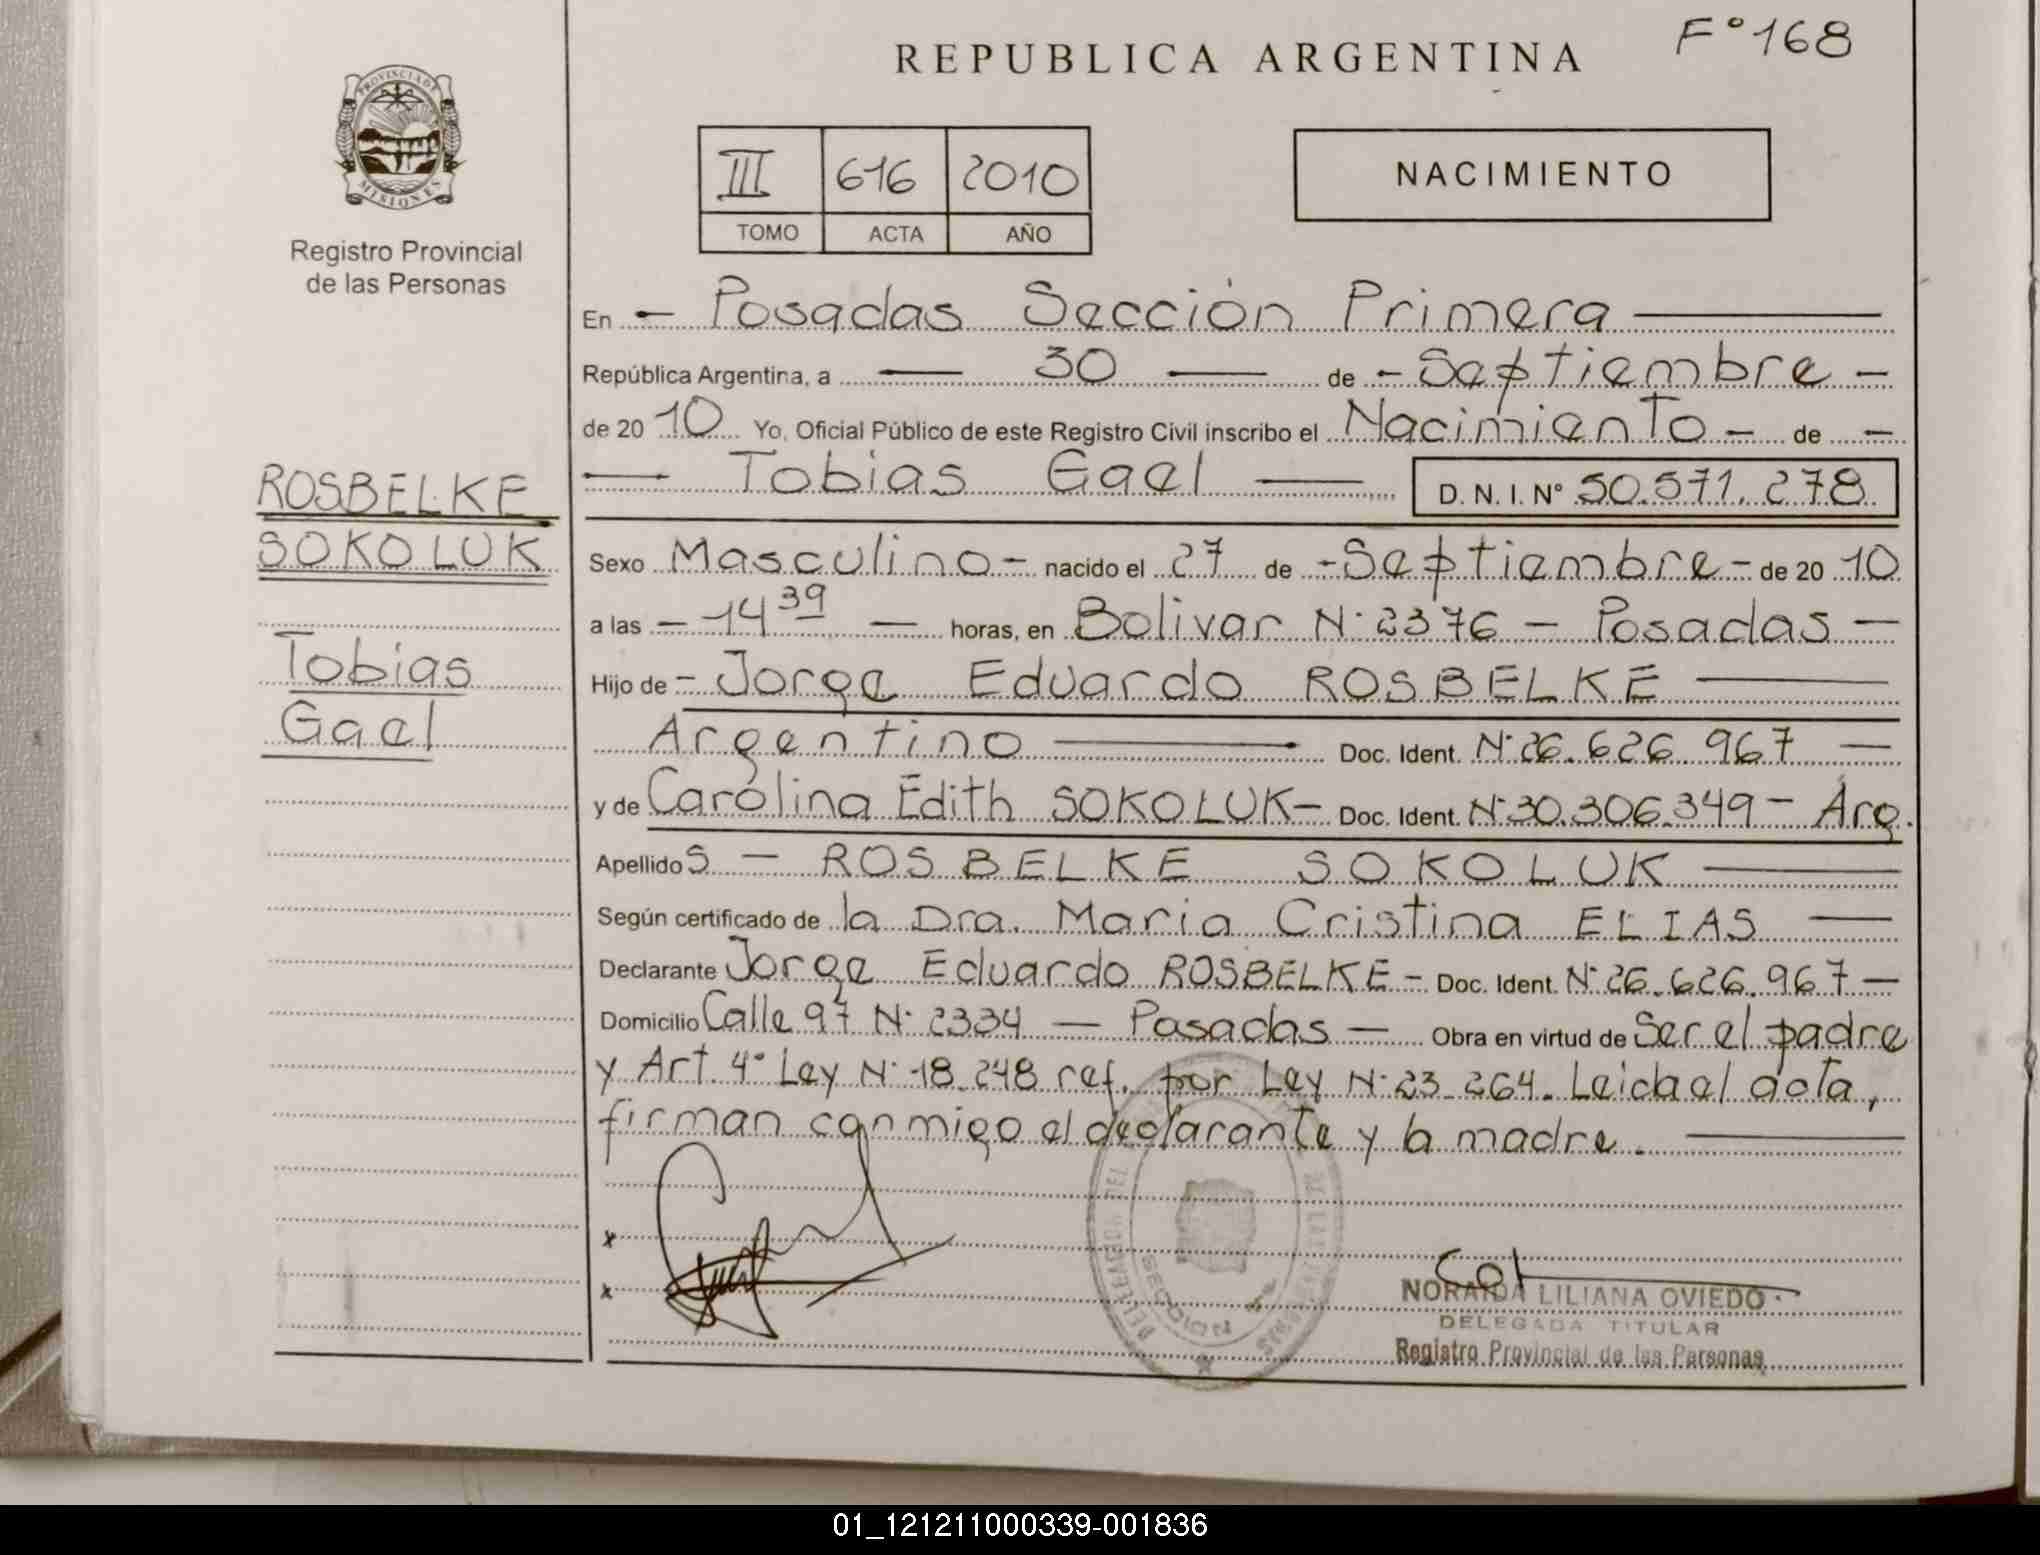 F° 168
REPUBLICA ARGENTINA
PROVINCIA DE
MISIONES
Registro Provincial
de las Personas
III 616 2010
TOMO ACTA AÑO
NACIMIENTO
En - Posadas Sección Primera
República Argentina, a 30 de - Septiembre -
de 20 10 Yo, Oficial Público de este Registro Civil inscribo el Nacimiento - de -
Tobias Gael D.N.I. N° 50.571.278
ROSBELKE
SOKOLUK
Tobias
Gael
Sexo Masculino - nacido el 27 de - Septiembre - de 20 10
a las - 14 39 - horas, en Bolivar N° 2376 - Posadas -
Hijo de - Jorge Eduardo ROSBELKE
Argentino Doc. Ident. N° 26.626.967 -
y de Carolina Edith SOKOLUK - Doc. Ident. N° 30.306.349 - Arg.
Apellidos - ROSBELKE SOKOLUK
Según certificado de la Dra. Maria Cristina ELIAS
Declarante Jorge Eduardo ROSBELKE - Doc. Ident. N° 26.626.967 -
Domicilio Calle 97 N° 2334 - Posadas - Obra en virtud de Ser el padre
y Art. 4° Ley N° 18.248 ref. por Ley N° 23.264. Leida el acta,
firman conmigo el declarante y la madre.
x
x
DELEGACION DEL
DE LAS PERSONAS
SECCION
NORAIDA LILIANA OVIEDO
DELEGADA TITULAR
Registro Provincial de las Personas
01_121211000339-001836